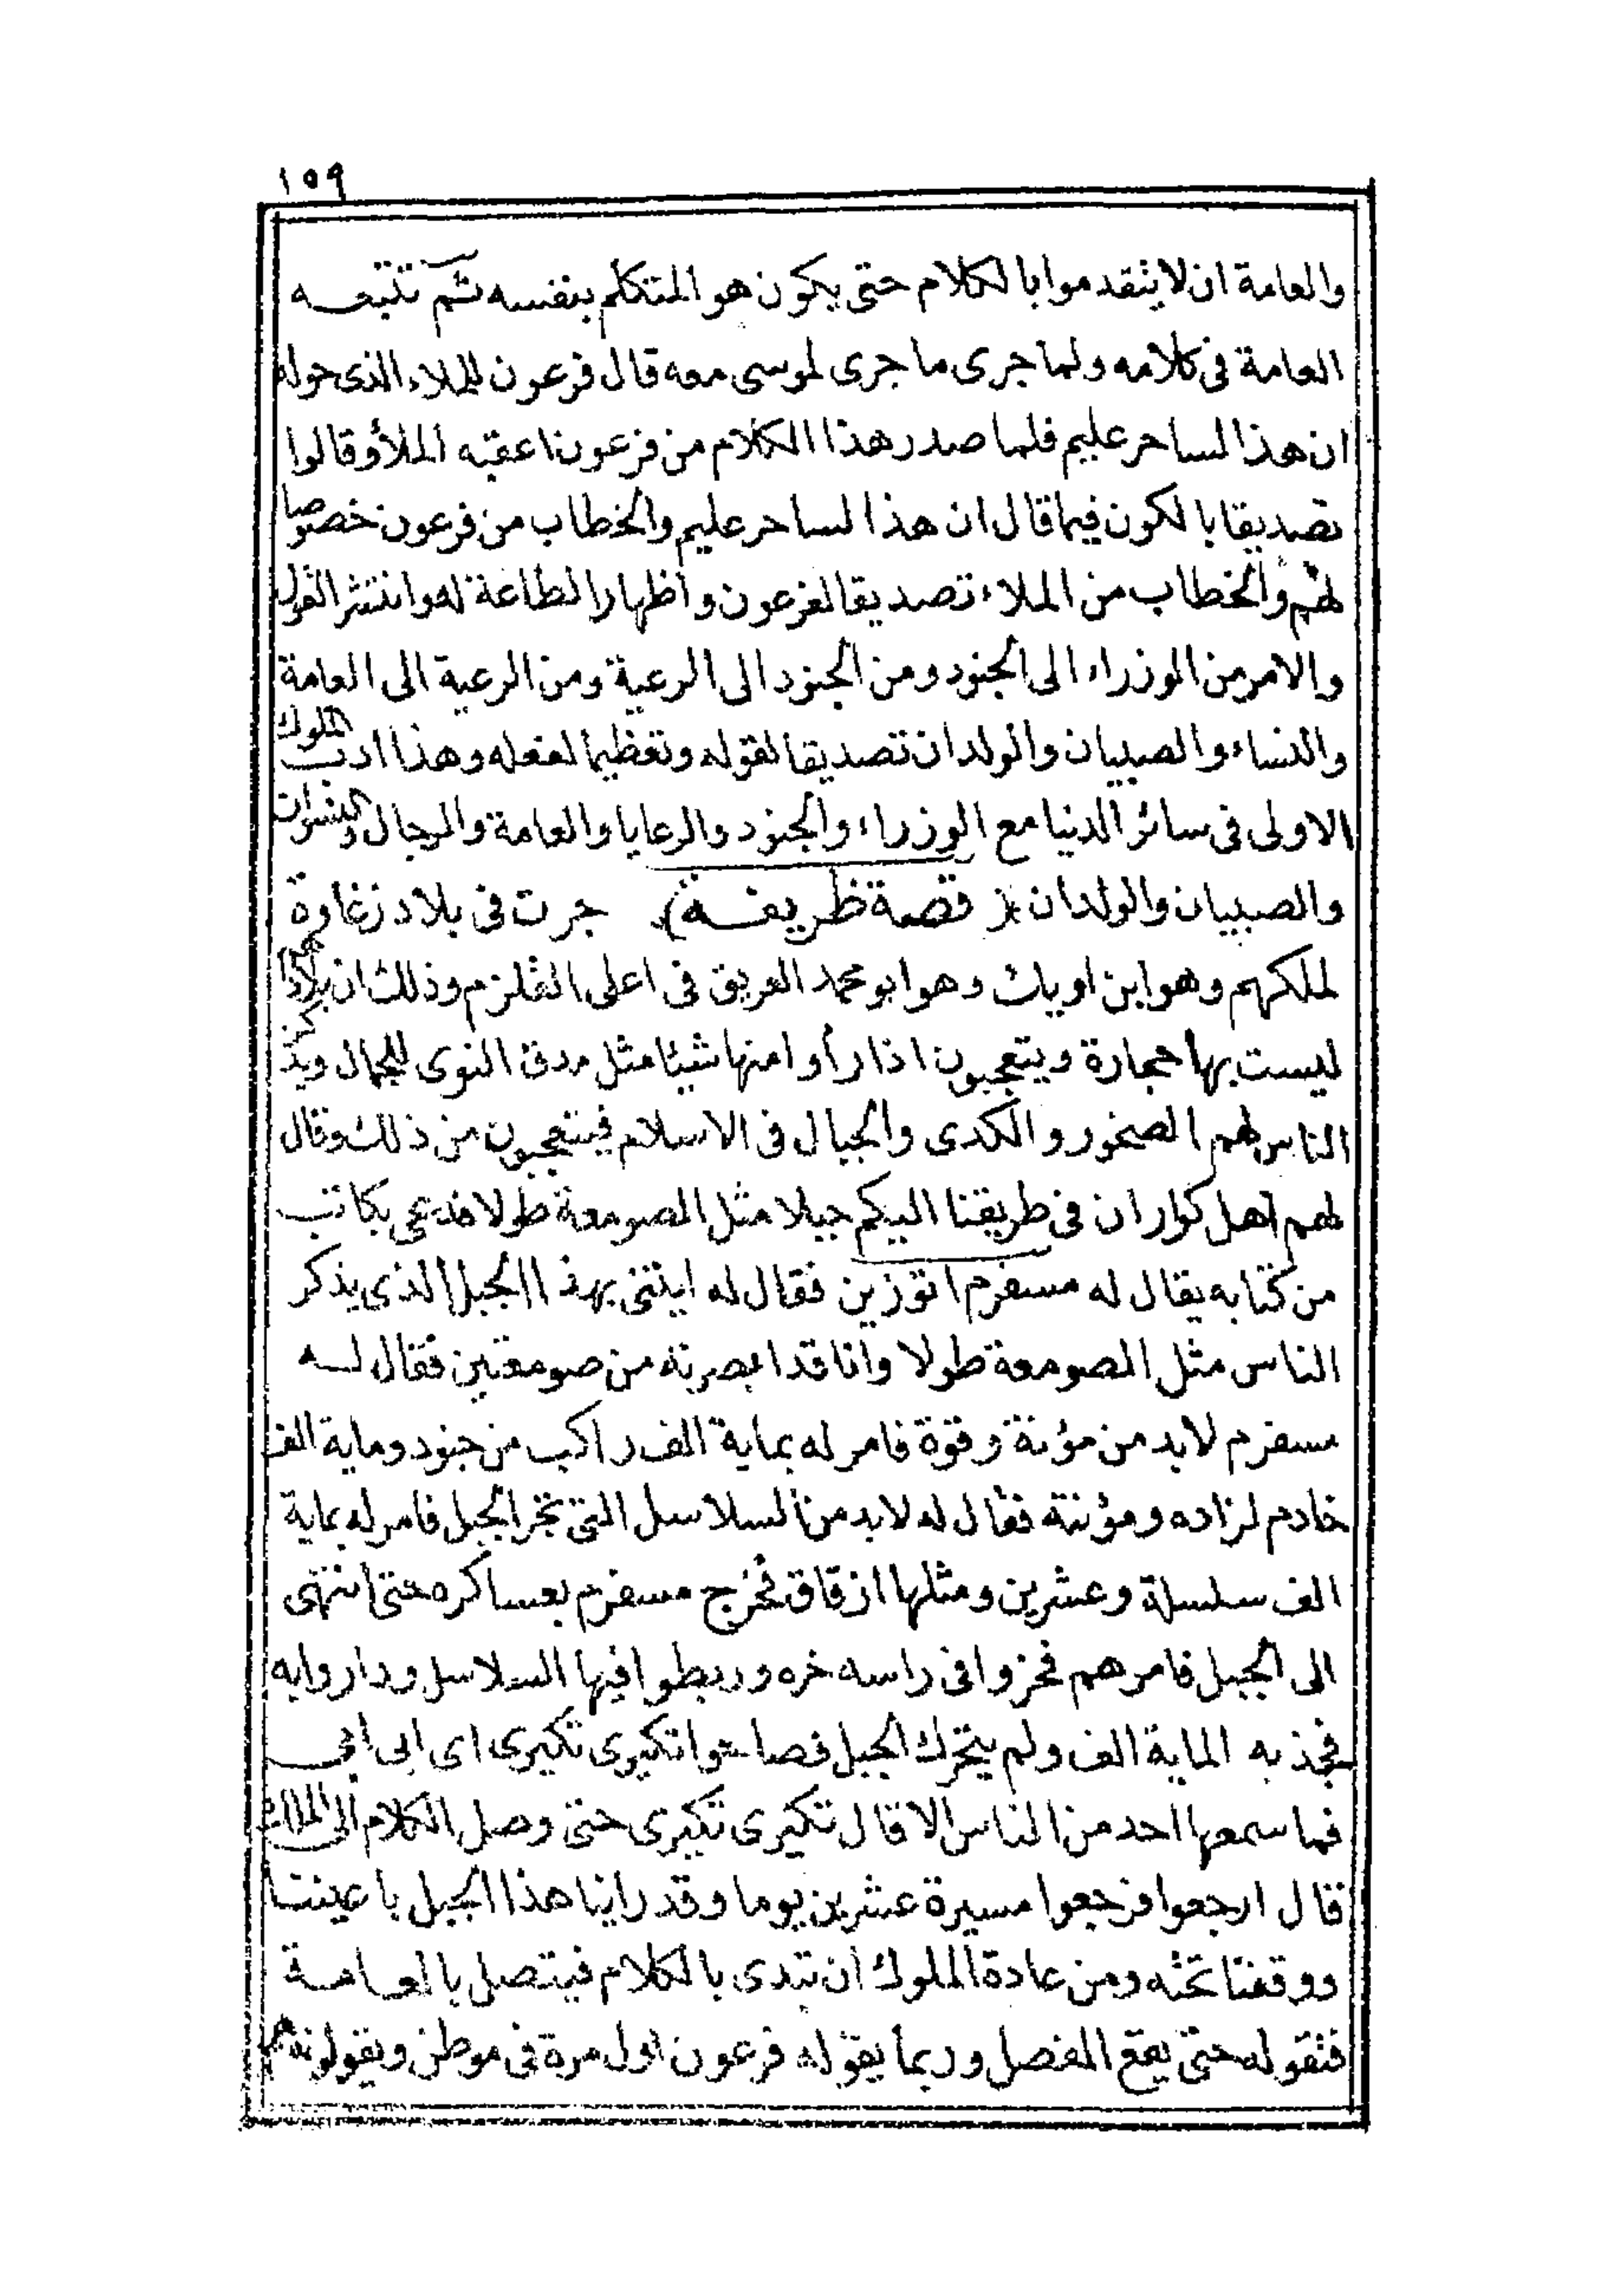 ١٥٩
والعامة ان لا يتقدموا بالكلام حتى يكون هو المتكلم بنفسه ثم تتبعه
العامة فى كلامه ولما جرى ما جرى لموسى معه قال فرعون للملاء الذى حوله
ان هذا لساحر عليم فلما صدر هذا الكلام من فرعون اعقبه الملأ وقالوا
تصديقا بالكون فيما قال ان هذا لساحر عليم والخطاب من فرعون خصوصا
لهم والخطاب من الملاء تصديقا لفرعون واظهارا لطاعة له وانتشر القول
والامر من الوزراء الى الجنود ومن الجنود الى الرعية ومن الرعية الى العامة
والنساء والصبيان والولدان تصديقا لقوله وتعظيما لفعله وهذا ادب الملوك
الاولى فى سائر الدنيا مع الوزراء والجنود والرعايا والعامة والرجال والنسوان
والصبيان والولدان ( قصة ظريفة ) جرت فى بلاد زغاوة
لملكهم وهو ابن اوبك وهو ابو محمد الغريق فى اعلى القلزم وذلك ان بلادهم
ليست بها حجارة ويتعجبون اذا رأوا منها شيئا مثل مدق النوى للجمال ويذكر
الناس لهم الصخور والكدى والجبال فى الاسلام فيتعجبون من ذلك وقال
لهم اهل كوار ان فى طريقنا اليكم جبلا مثل الصومعة طولا فدعى بكاتب
من كتابه يقال له مسفرم اتوزين فقال له ايتنى بهذا الجبل الذى يذكر
الناس مثل الصومعة طولا وانا قد ابصرته من صومعتين فقال له
مسفرم لابد من مؤنة وقوة فامر له بماية الف راكب من جنود وماية الف
خادم لزاده ومؤنته فقال له لابد من السلاسل التى تجر الجبل فامر له بماية
الف سلسلة وعشرين ومثلها ازقاق فخرج مسفرم بعساكره حتى انتهى
الى الجبل فامرهم فحزوا فى راسه خره وربطوا فيها السلاسل وداروا به
فجذبه الماية الف ولم يتحرك الجبل فصاحوا تكيرى تكيرى اى ابى ابى
فما سمعها احد من الناس الا قال تكيرى تكيرى حتى وصل الكلام الى الملك
قال ارجعوا فرجعوا مسيرة عشرين يوما وقد راينا هذا الجبل باعيننا
ووقفنا تحته ومن عادة الملوك ان تبدى بالكلام فيتصل بالعامة
فتقوله حتى يقع المفصل وربما يقوله فرعون اول مرة فى موطن ويقولونه